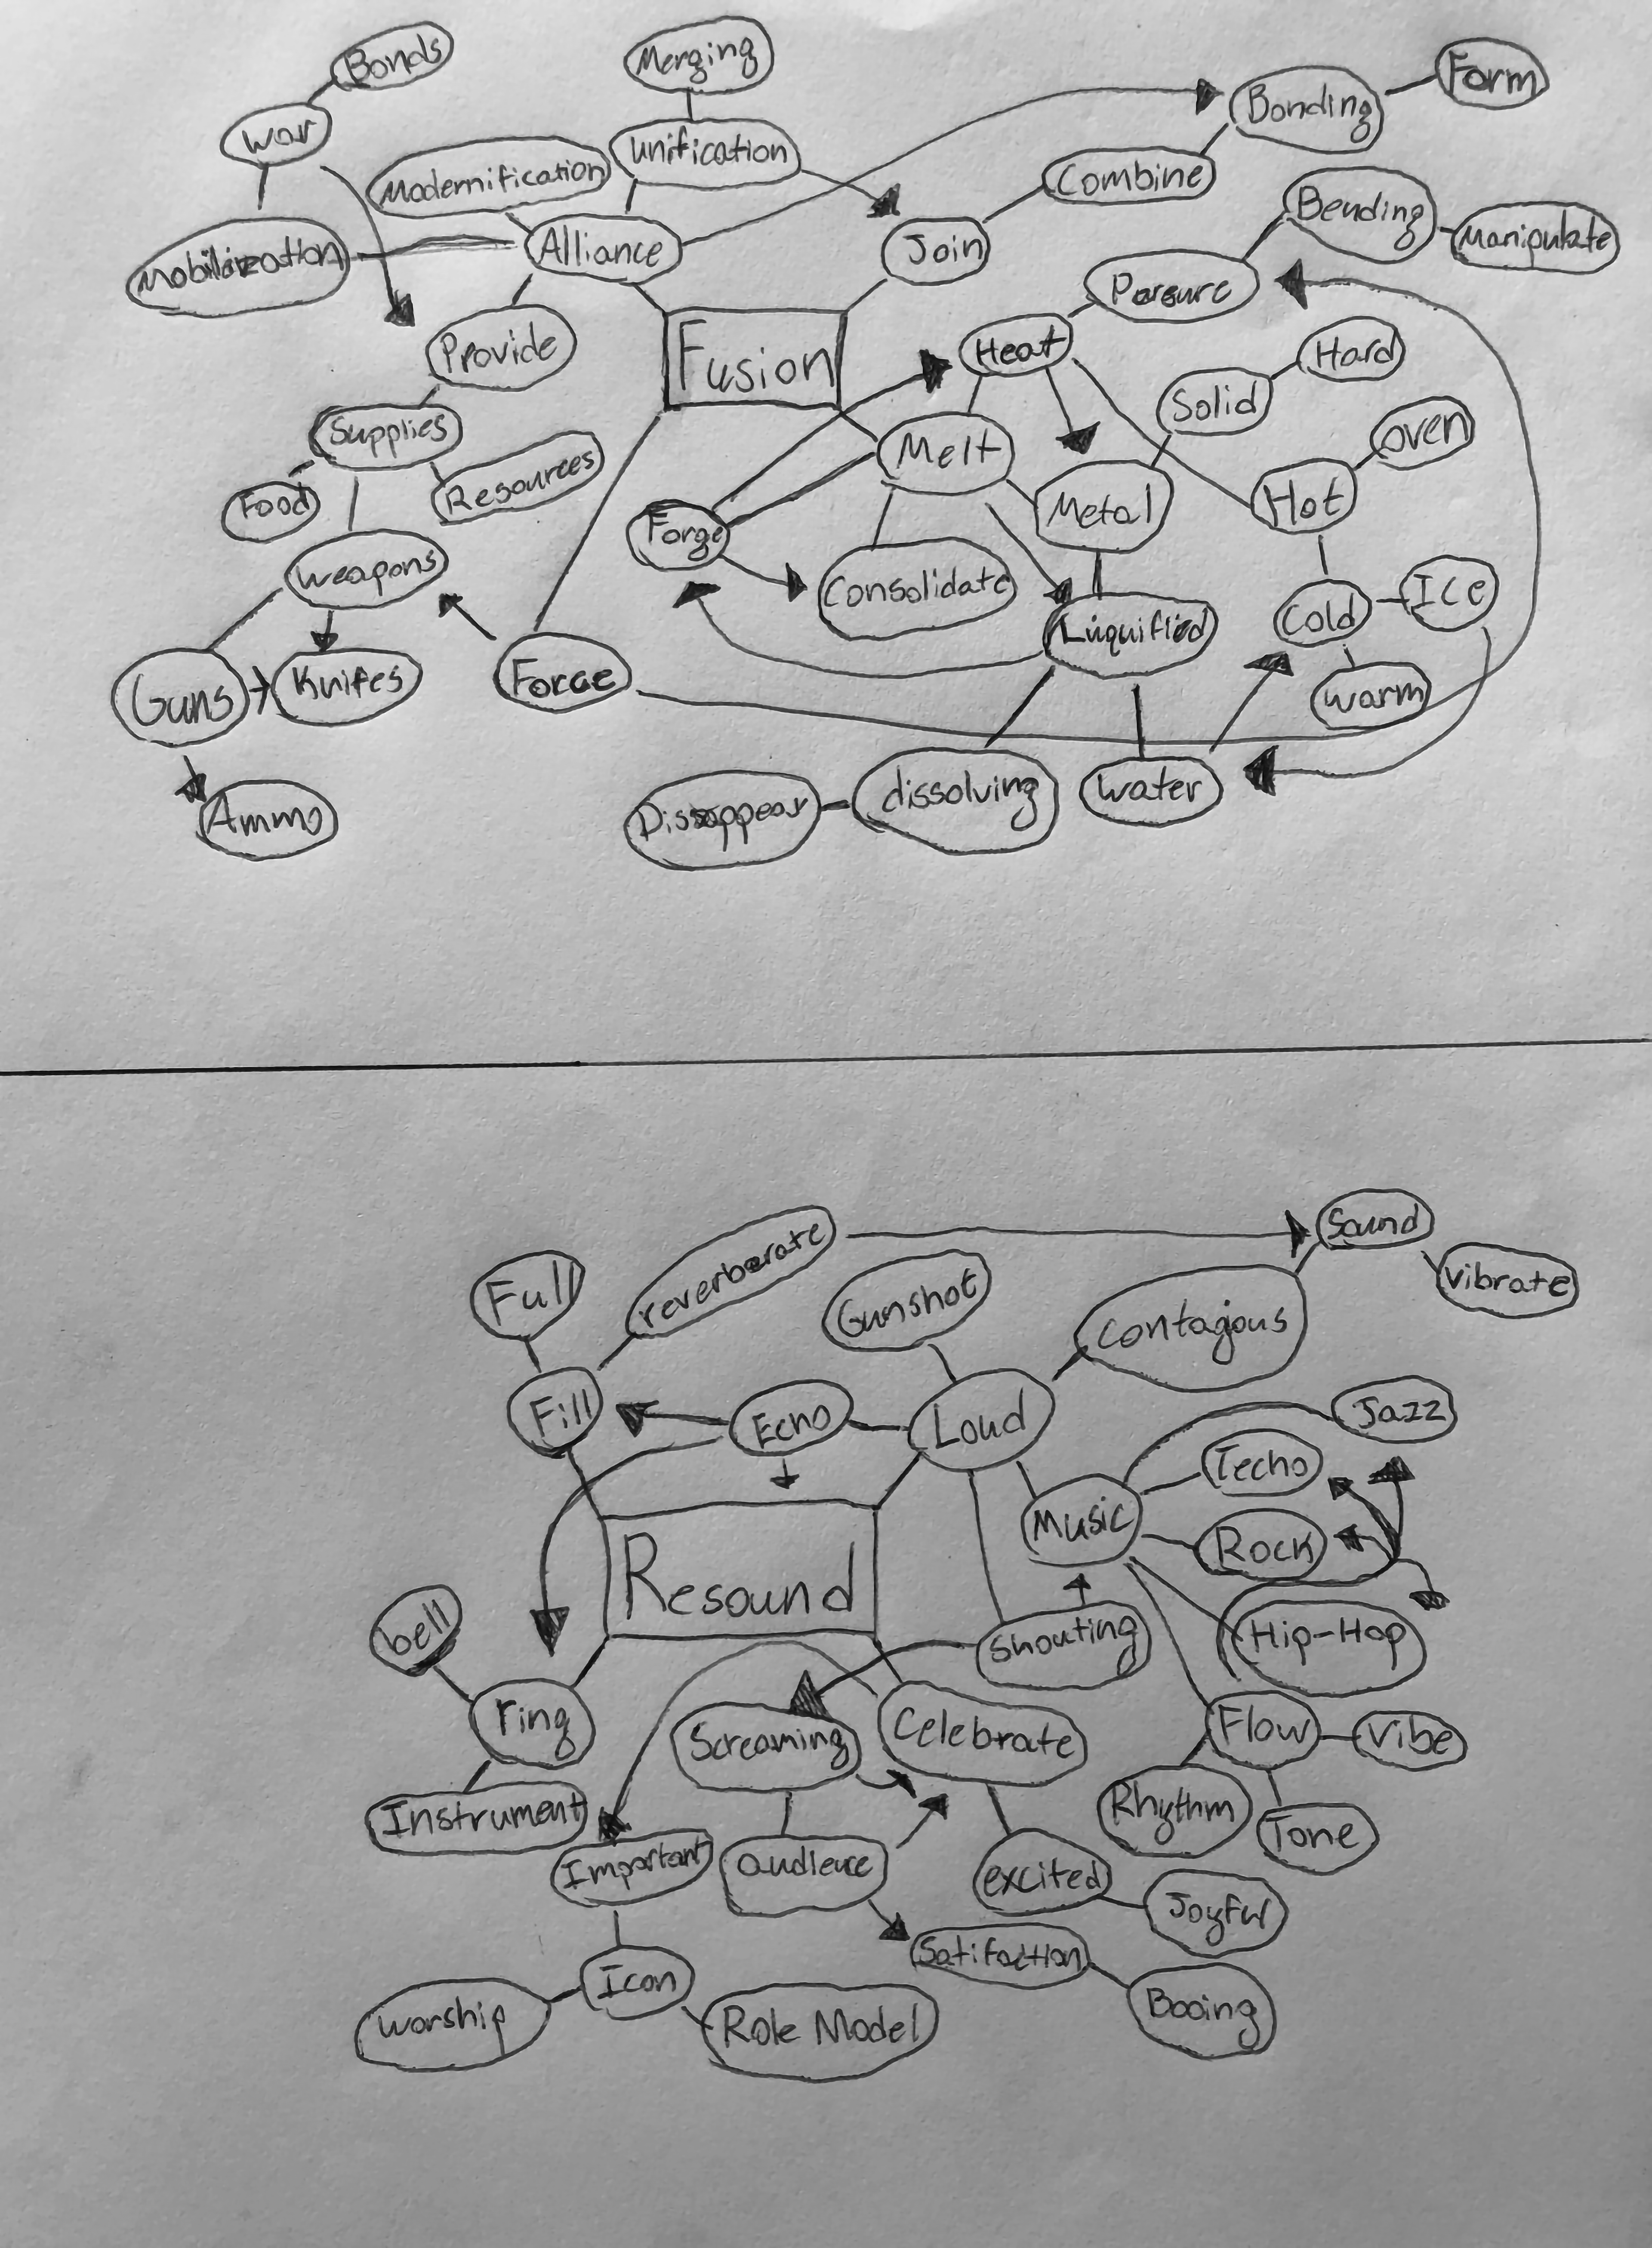 Bonds
Merging
Form
Bonding
War
Unification
Modernification
Combine
Bending
Manipulate
Alliance
Join
Mobilization
Persure
Provide
Fusion
Heat
Hard
Solid
Supplies
Melt
oven
Resources
Food
Metal
Hot
Forge
Weapons
Consolidate
Cold
ICe
Liuquified
Guns
Knifes
Force
warm
Dissappear
dissolving
water
Ammo
Sound
reverberate
vibrate
Full
Gunshot
Contagious
Fill
Echo
Loud
Jazz
Techo
Music
Rock
Resound
bell
shouting
Hip-Hop
ring
Screaming
Celebrate
Flow
Vibe
Instrument
Rhythm
Tone
Important
audience
excited
Joyful
Satifaction
Icon
worship
Role Model
Booing